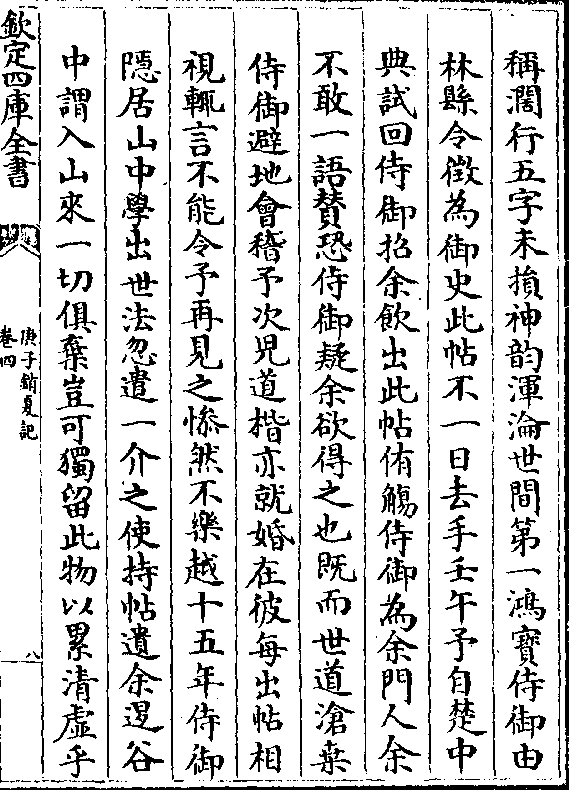 稱濶行五字未損神韵渾淪世間第一鴻寳侍御由
林縣令徴為御史此帖不一日去手壬午予自楚中
典試回侍御招余飲出此帖侑觴侍御為余門人余
不敢一語賛恐侍御疑余欲得之也既而世道滄桒
侍御避地會稽予次兒道楷亦就婚在彼每出帖相
視輒言不能令予再見之惨然不樂越十五年侍御
隠居山中學出世法忽遣一介之使持帖遺余邃谷
中謂入山來一切俱棄豈可獨留此物以累清虚乎
欽定四庫全書
庚子銷夏記
卷四
八